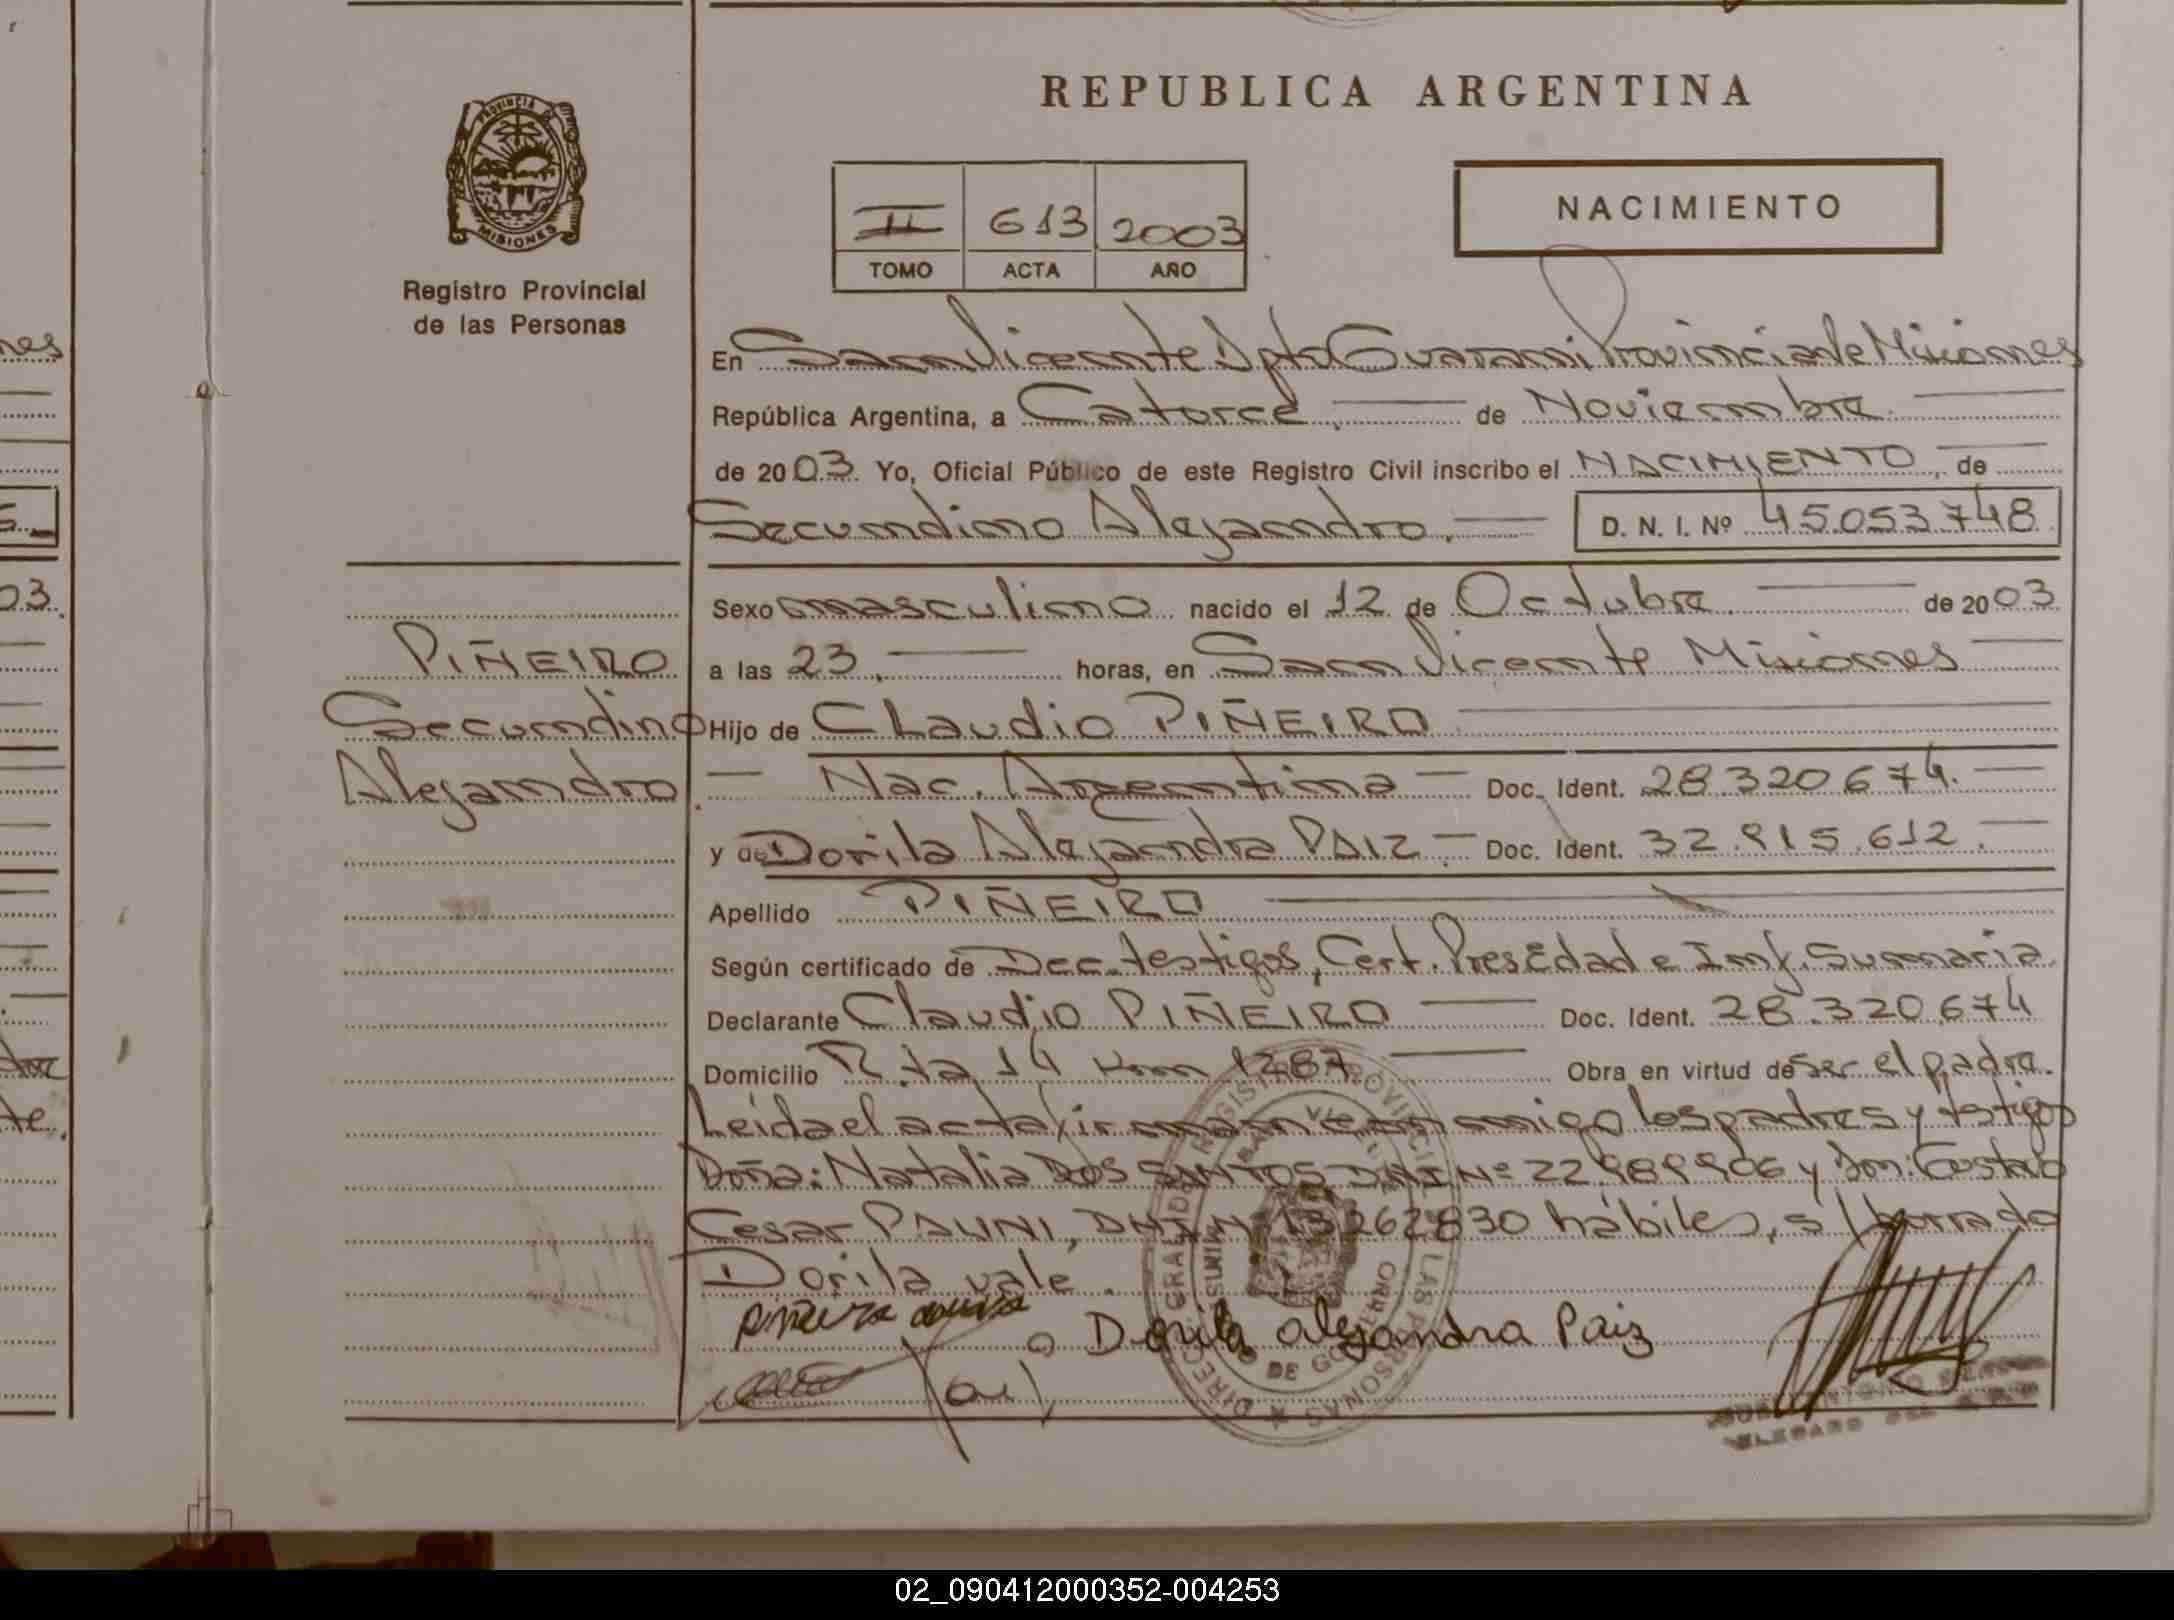 REPUBLICA ARGENTINA
PROVINCIA DE
MISIONES
Registro Provincial
de las Personas
II 613 2003
TOMO ACTA AÑO
NACIMIENTO
En San Vicente Dpto Guarani Provincia de Misiones
República Argentina, a Catorce de Noviembre
de 2003. Yo, Oficial Público de este Registro Civil inscribo el NACIMIENTO, de
Secundino Alejandro. D. N. I. Nº 45.053.748
Sexo masculino nacido el 12 de Octubre de 2003
a las 23 horas, en San Vicente Misiones
Hijo de Claudio PIÑEIRO
Nac. Argentina Doc. Ident. 28.320.674.
y de Dorila Alejandra PAIZ Doc. Ident. 32.915.612.
Apellido PIÑEIRO
Según certificado de Dec. testigos, Cert. Pres Edad e Inf. Sumaria
Declarante Claudio PIÑEIRO Doc. Ident. 28.320.674
Domicilio R.ta 14 Km 1287 Obra en virtud de ser el padre.
Leída el acta firman conmigo los padres y testigos
Doña: Natalia DOS SANTOS DNI Nº 22.989.906 y Don: Gustavo
Cesar PAUNI, DNI Nº 13262830 hábiles, s/borrado
Dorila vale.
Dorila alejandra Paiz
PIÑEIRO
Secundino
Alejandro.
DIREC GRAL DE REGISTRO PROVINCIAL DE LAS PERSONAS
02_090412000352-004253